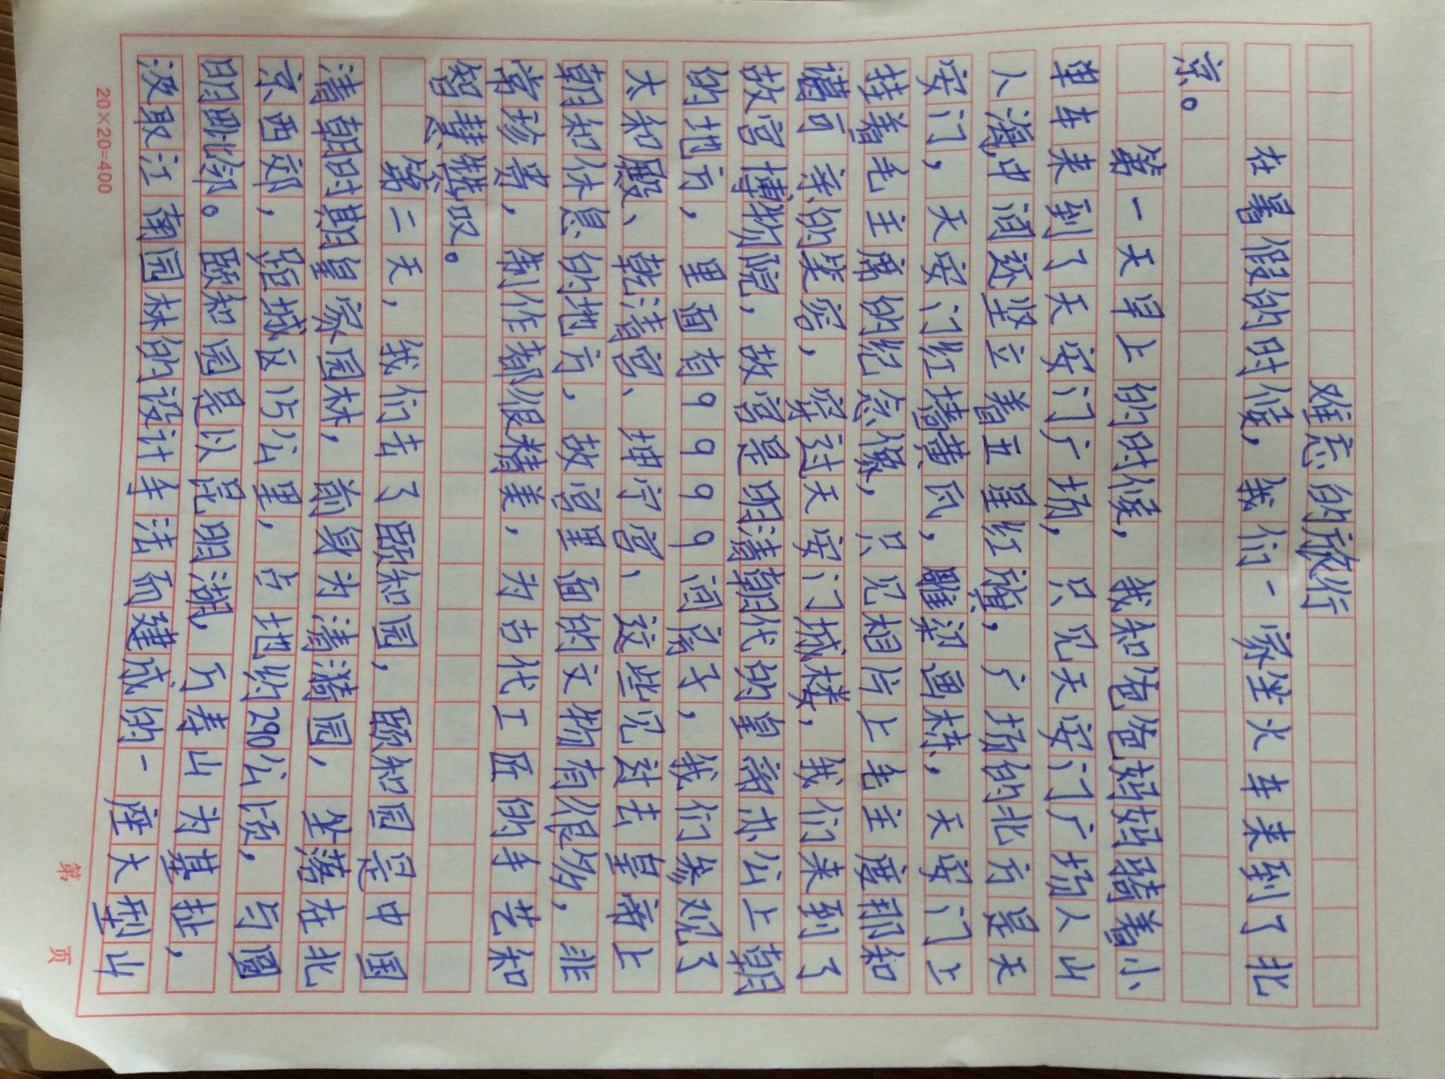 难忘的旅行
在暑假的时候，我们一家坐火车来到了北
京。
第一天早上的时候，我和爸爸妈妈骑着小
单车来到了天安门广场，只见天安门广场人山
人海中间还坚立着五星红旗，广场的北方是天
安门，天安门红墙黄瓦，雕梁画栋，天安门上
挂着毛主席的纪念像，只见相片上毛主度那和
蔼可亲的笑容，穿过天安门城楼，我们来到了
故宫博物院，故宫是明清朝代的皇帝办公上朝
的地方，里面有9999间房子，我们参观了
太和殿、乾清宫、坤宁宫，这些见过去皇帝上
朝和休息的地方，故宫里面的文物有很多，非
常珍贵，制作都很精美，为古代工匠的手艺和
智慧赞叹。
第二天，我们去了颐和园，颐和园是中国
清朝时期皇家园林，前身为清漪园，坐落在北
京西郊，距城区15公里，占地约290公顷，与圆
明毗邻。颐和园是以昆明湖，万寿山为基址，
汲取江南园林的设计手法而建成的一座大型山
20×20=400
第 页